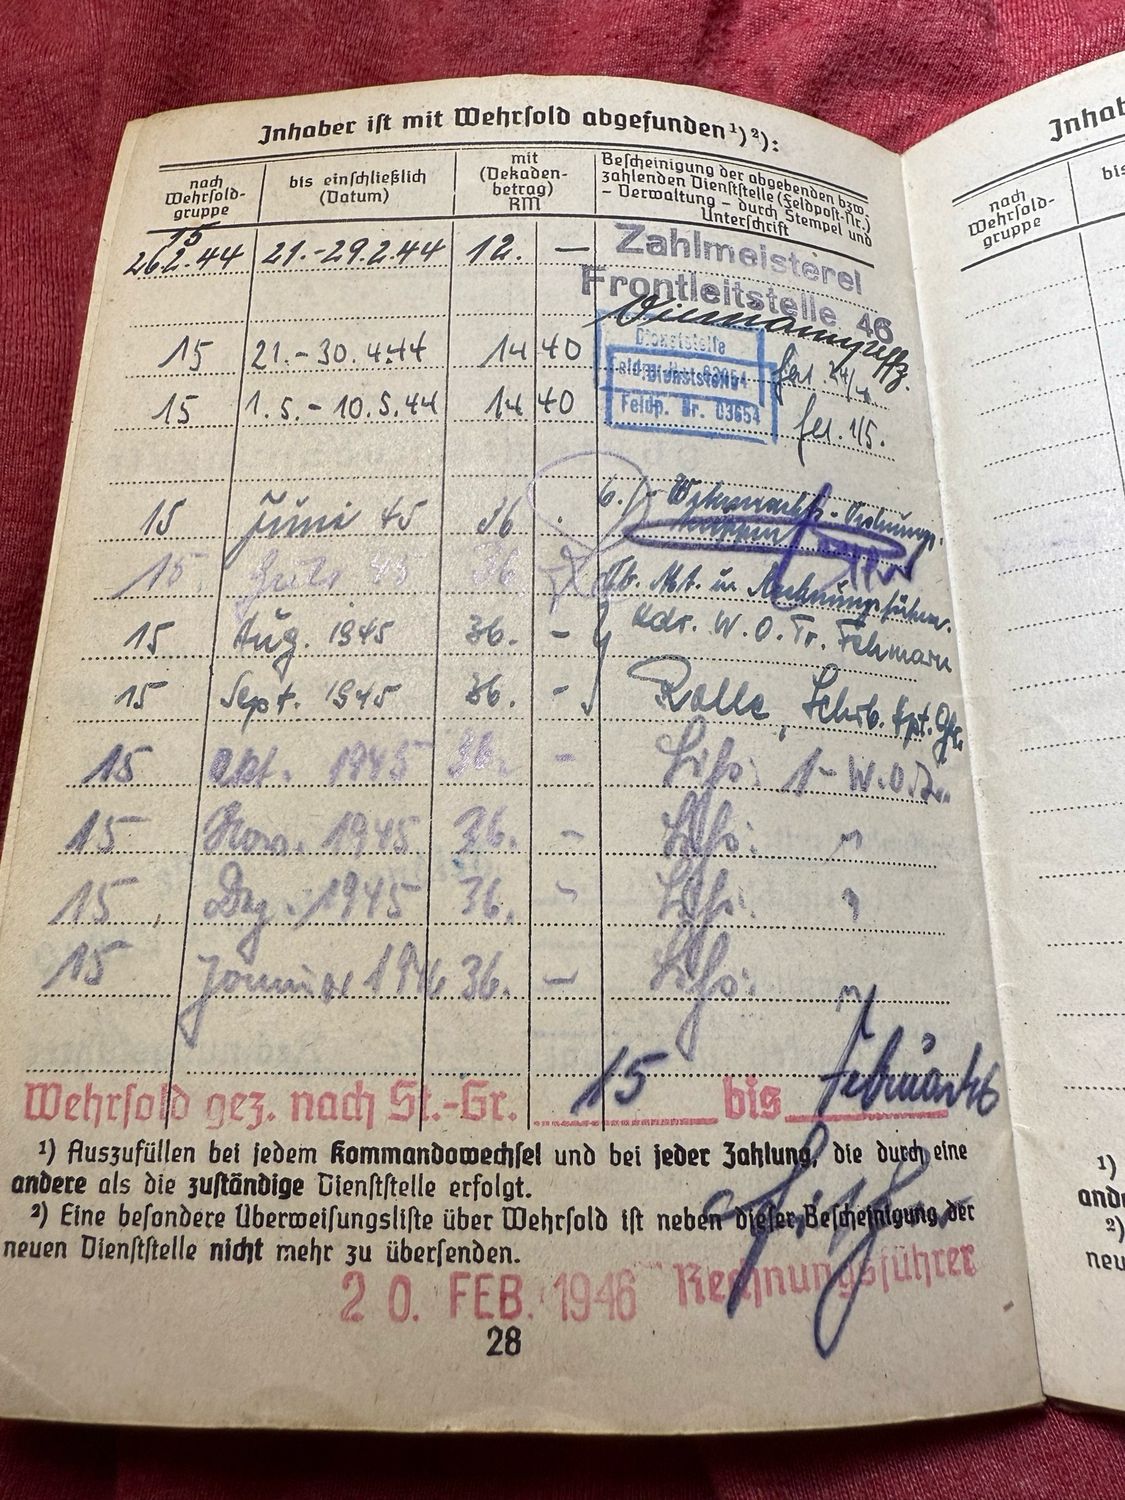 Inhaber ist mit Wehrsold abgefunden¹)²):
nach Wehrsold-gruppe
bis einschließlich (Datum)
mit (Dekaden-betrag) RM
Bescheinigung der abgebenden bzw. zahlenden Dienststelle (Feldpost-Nr.) – Verwaltung – durch Stempel und Unterschrift
15
26.2.44 21.-29.2.44 12. —
Zahlmeisterei
Frontleitstelle 46
15 21.-30.4.44 14 40
Dienststelle
Dienststelle
Feldp. Nr. 03654
15 1.5.-10.5.44 14 40
15 Juni 45 36
15 Juli 45 36
15 Aug. 1945 36. -
Kdr. W.O.Tr. Fehmarn
15 Sept. 1945 36. -
15 Okt. 1945 36. -
1- W.O.
15 Nov. 1945 36. - "
15 Dez. 1945 36. - "
15 Januar 1946 36. - "
Wehrsold gez. nach St.-Gr. 15 bis Februar 46
¹) Auszufüllen bei jedem Kommandowechsel und bei jeder Zahlung, die durch eine
andere als die zuständige Dienststelle erfolgt.
²) Eine besondere Überweisungsliste über Wehrsold ist neben dieser Bescheinigung der
neuen Dienststelle nicht mehr zu übersenden.
20. FEB. 1946 Rechnungsführer
28
Inhab
nach Wehrsold-gruppe
bis
¹)
ande
²)
neu